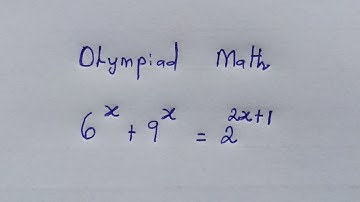 Olympiad Math
6^x + 9^x = 2^{2x+1}